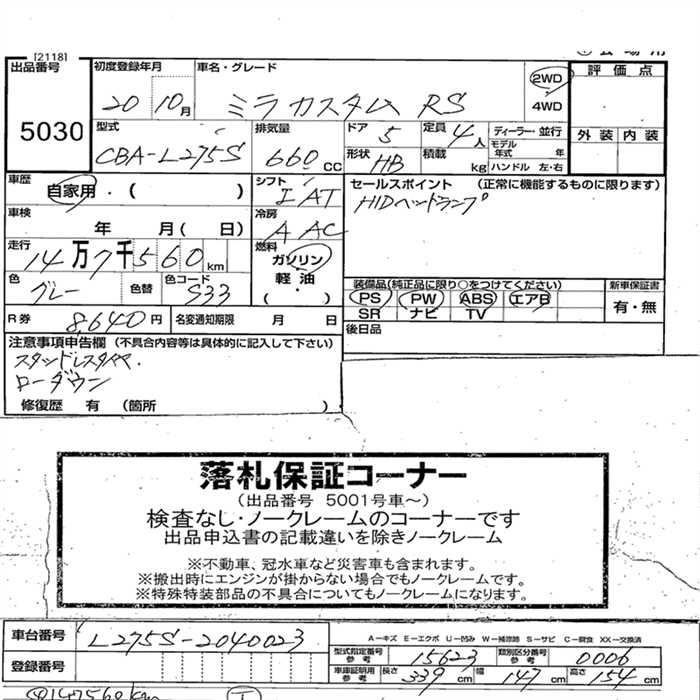 [2118]
出品番号 初度登録年月 車名・グレード 評価点
5030 20 10月 ミラカスタム RS 2WD 4WD
外装 内装
型式 排気量 ドア 定員 ディーラー・並行
CBA-L275S 660cc 5 4人 モデル年式 年
形状 HB 積載 kg ハンドル 左・右
車歴 自家用・( ) シフト IAT セールスポイント (正常に機能するものに限ります)
HIDヘッドランプ
車検 年 月(日) 冷房 AAC
走行 14万7千560km 燃料 ガソリン 軽油 ( )
色 グレー 色替 色コード S33
装備品(純正品に限り○をつけてください) 新車保証書
PS PW ABS エアB 有・無
SR ナビ TV
R券 8,640円 名変通知期限 月 日 後日品
注意事項申告欄 (不具合内容等は具体的に記入して下さい)
スタッドレスタイヤ.
ローダウン
修復歴 有 (箇所 )
落札保証コーナー
(出品番号 5001号車~)
検査なし・ノークレームのコーナーです
出品申込書の記載違いを除きノークレーム
※不動車、冠水車など災害車も含まれます。
※搬出時にエンジンが掛からない場合でもノークレームです。
※特殊特装部品の不具合についてもノークレームになります。
車台番号 L275S-2040023 A－キズ E－エクボ U－凹み W－補修跡 S－サビ C－腐食 XX－交換済
登録番号 型式指定番号 参考 15623 類別区分番号 参考 0006
車庫証明用 参考 長さ 339cm 幅 147cm 高さ 154cm
147560km